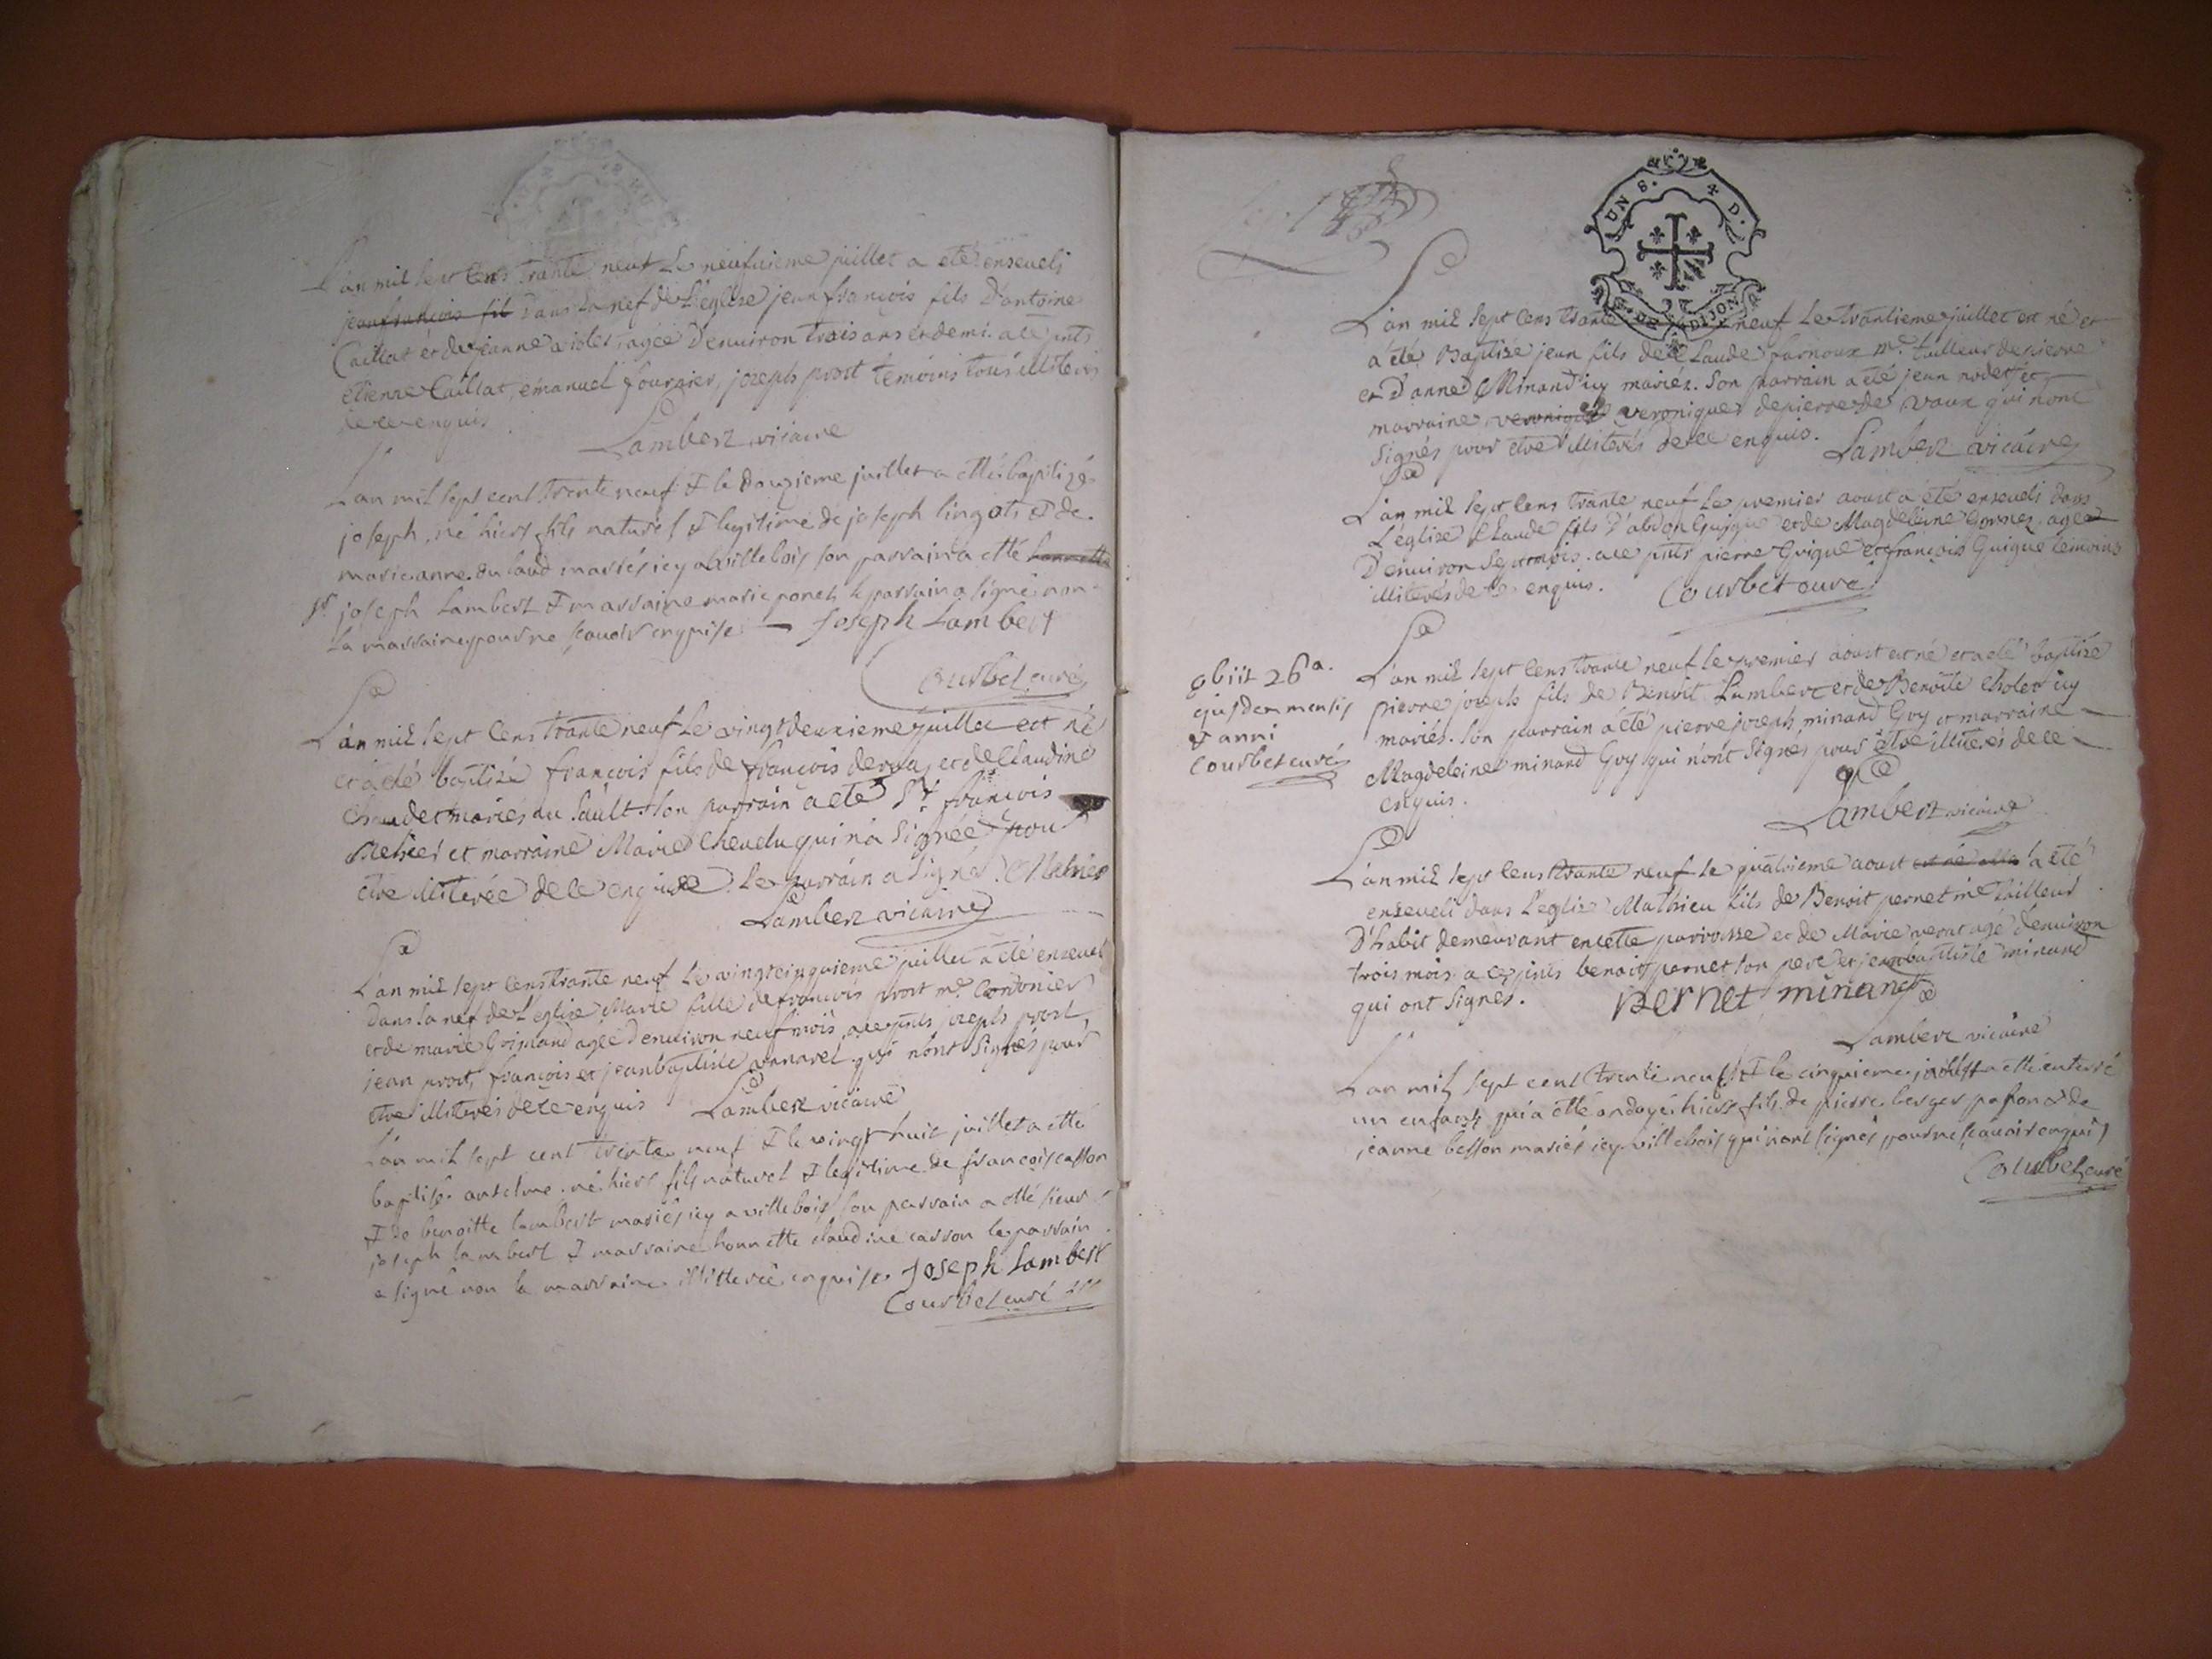 L'an mil sept cens trante neuf le neufvieme juillet a eté enseveli
jean françois fils dans la nef de l'eglise jean françois fils d'antoine
Caillat et de jeanne violet, agée d'environ trois ans et demi. a ce pnts
etienne Caillat, emanuel fournier, joseph prost temoins tous illiterés
de ce enquis
Lambert vicaire
L'an mil sept cent trente neuf & le douzieme juillet a etté baptizé
joseph, né hiers fils naturel & legitime de joseph lingots & de
marieanne du laud mariés icy a villebois son parrain a etté
sr joseph Lambert & marraine marie ponet le parrain a signé non
la marraine pour ne sçavoir enquise Joseph Lambert
Courbet curé
L'an mil sept cens trante neuf le vingtdeuxieme juillet est né
et a eté baptisé françois fils de françois dervaj et de Claudine
Chaudet mariés du Sault son parrain a eté Sr. françois
Mehier et marraine Marie Cheudu qui n'a signée pour
etre illiterée de ce enquise. Le parrain a signé. Mehier
Lambert vicaire
L'an mil sept cens trante neuf Le vingtcinquieme juillet a été enseveli
dans la nef de L'eglise Marie fille de françois prost me. Cordonier
et de marie Grimand agée d'environ neuf mois, a ce pnts joseph prost,
jean prost, françois et jeanbaptiste vanarel qui n'ont signés pour
etre illiterés de ce enquis Lambert vicaire
L'an mil sept cent trente neuf & le vingt huit juillet a etté
baptisé antelme né hiers fils naturel & legitime de francois casson
& de benoitte lambert mariés icy a villebois son parrain a etté sieur
joseph lambert & marraine honnette claudine casson le parrain
a signé non la marraine illitterée enquise Joseph Lambert
Courbet curé
UN S. D.
DIJON
L'an mil sept cens trante neuf Le trantieme juillet est né et
a été Baptisé jean fils de Claude farnoux me. tailleur de pierre
et d'anne Minand icy mariés. Son parrain a eté jean nodet et
marraine veronique veronique depierre de vaux qui n'ont
signés pour etre illiterés de ce enquis. Lambert vicaire
L'an mil sept cens trante neuf Le premier aoust a eté enseveli dans
L'église Claude fils d'abdon Guigue et de Magdeleine Cornes, agée
D'environ Sept mois. a ce pnts pierre Guigue et françois Guigue temoins
illiterés de ce enquis. Courbet curé
obiit 26a.
ejusdem mensis
& anni
Courbet curé
L'an mil sept cens trante neuf le premier aoust est né et a eté baptisé
pierre joseph fils de Benoit Lambert et de Benoite Cholet icy
mariés. son parrain a eté pierre joseph minand Guy et marraine
Magdeleine minand Guy qui n'ont signés pour etre illiterés de ce
enquis.
Lambert vicaire
L'an mil sept cens trante neuf le quatrieme aoust est né a été
enseveli dans l'eglise Mathieu fils de Benoit pernet me tailleur
D'habit demeurant en cette parroisse et de Marie verat agé d'environ
trois mois a ce pnts benoit pernet son pere et jeanbaptiste minand
qui ont signés. pernet minand
Lambert vicaire
L'an mil sept cent trente neuf & le cinquieme aoust a etté enterré
un enfant qui a etté ondoyé hiers fils de pierre berger pafon & de
jeanne besson mariés icy villebois qui n'ont signés pour ne sçavoir enquis
Courbet curé